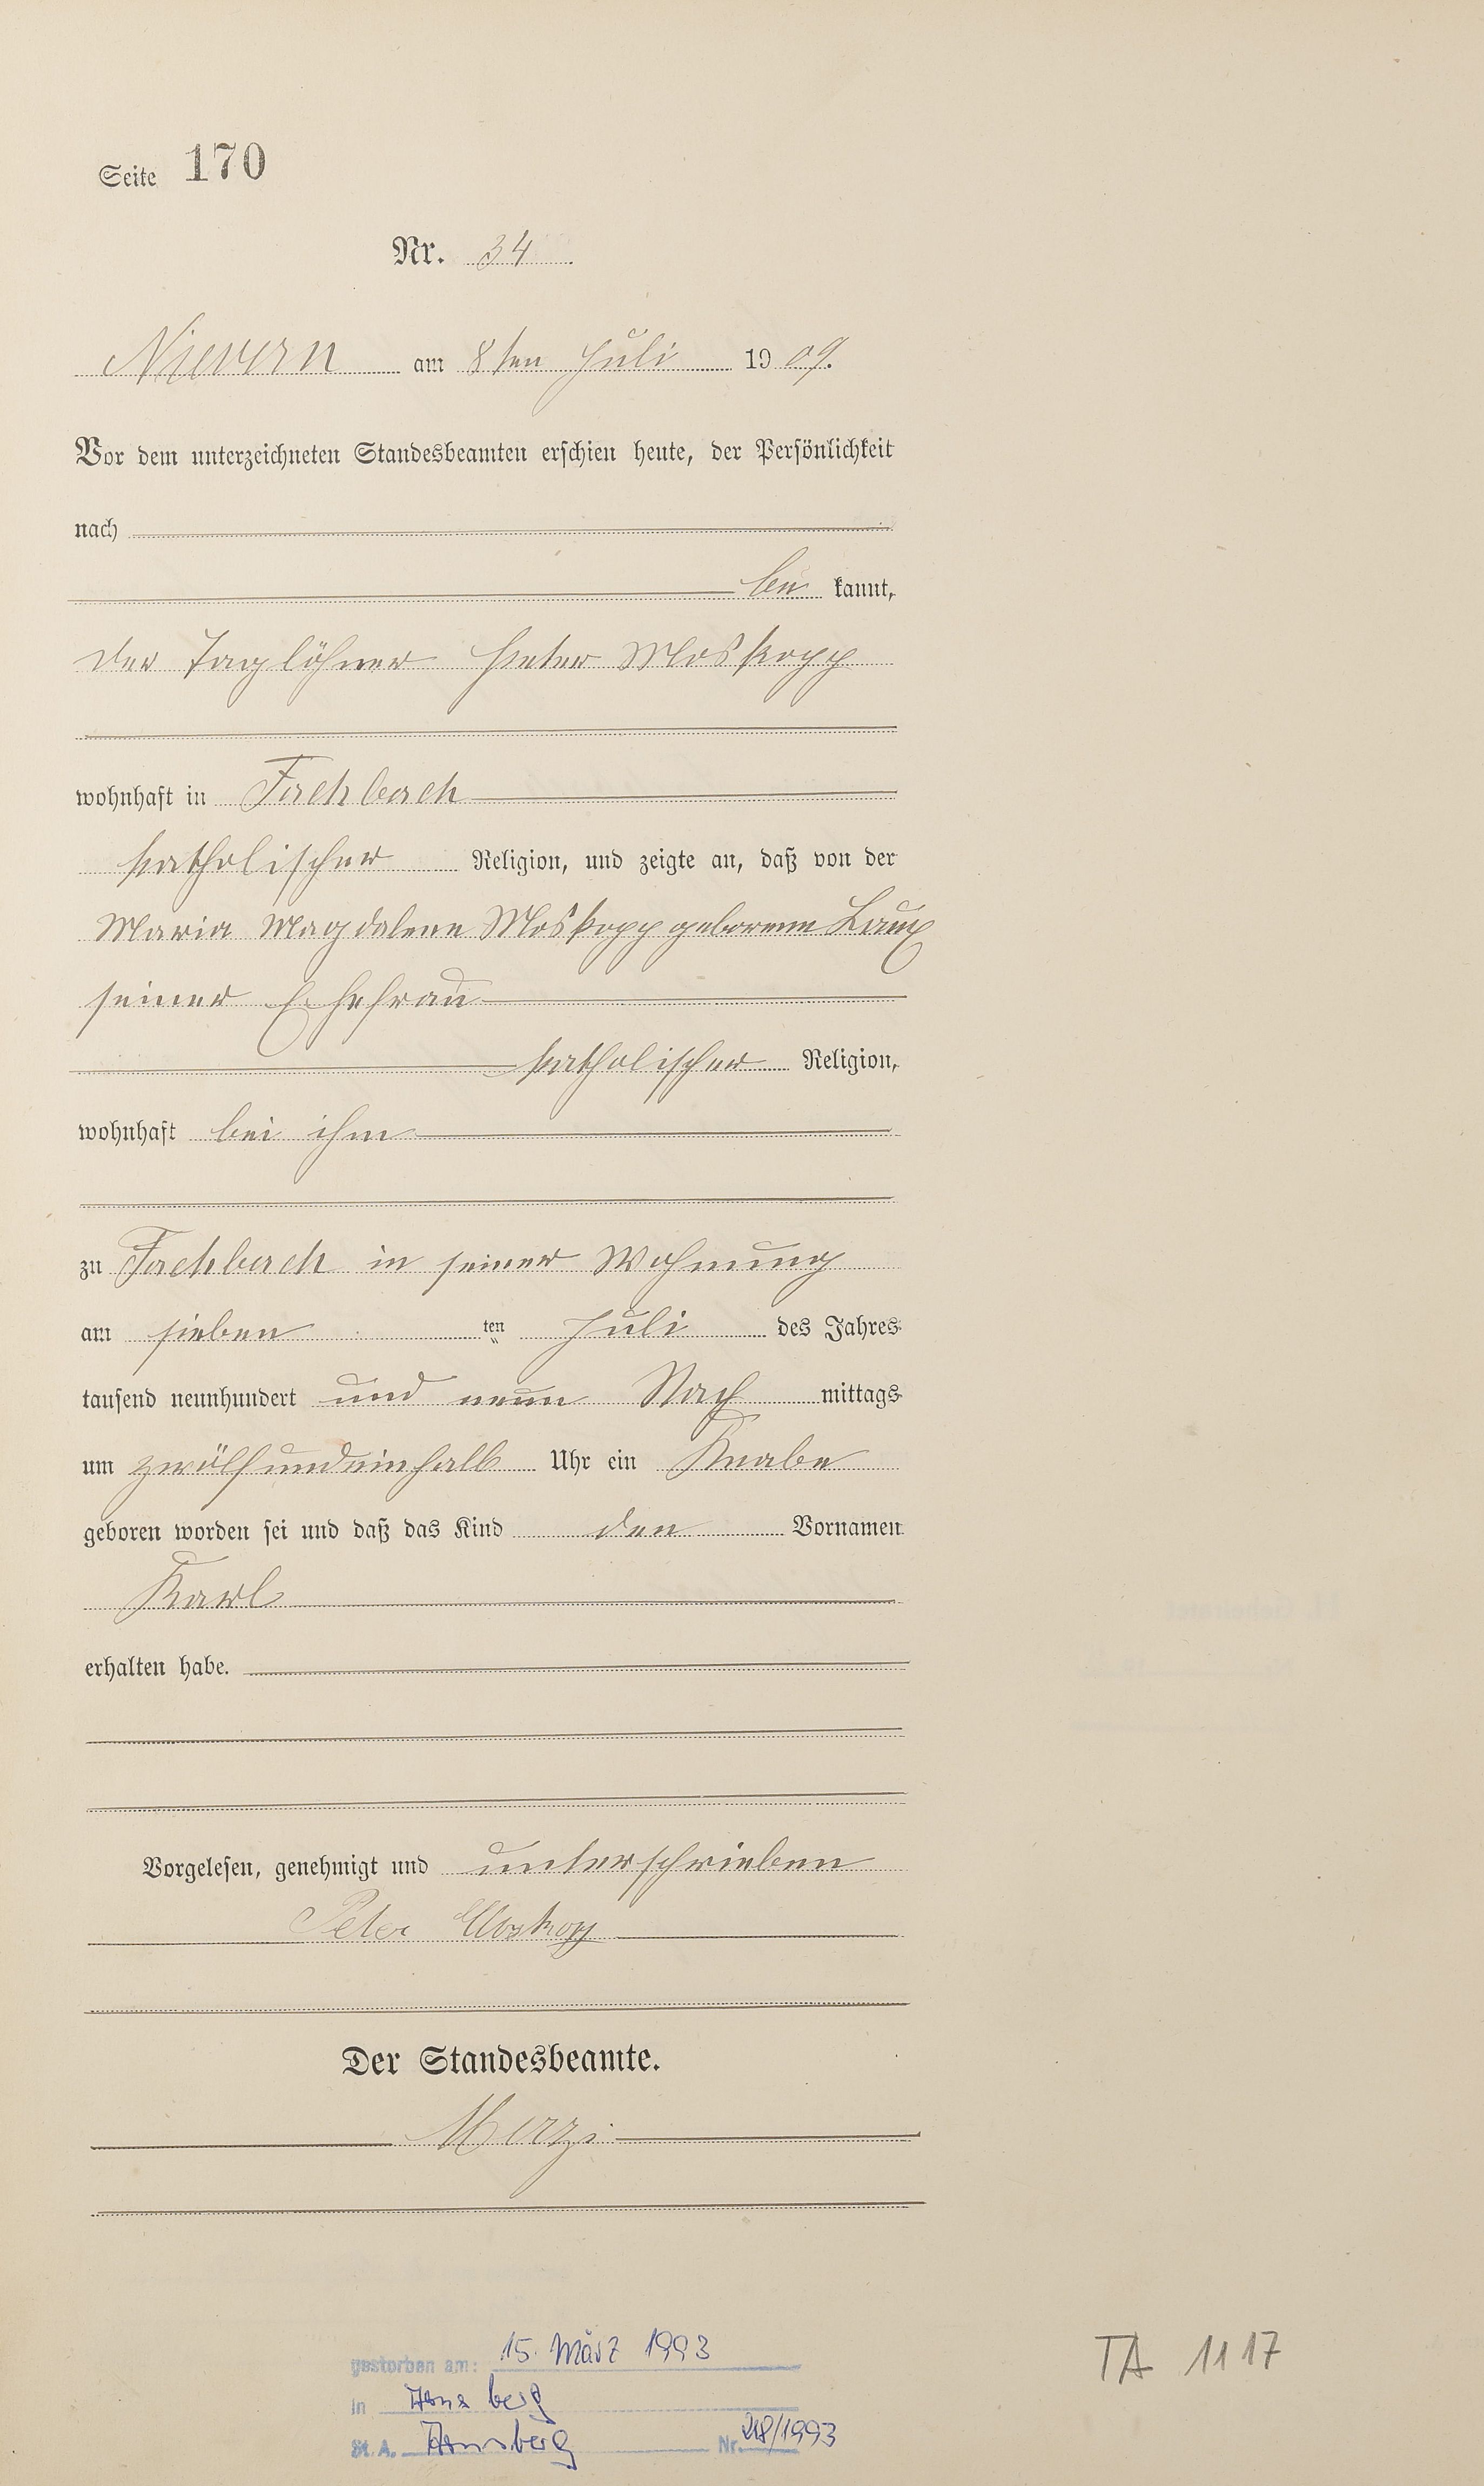 Seite 170
Nr. 34
Nievern am 8ten Juli 1909.
Vor dem unterzeichneten Standesbeamten erschien heute, der Persönlichkeit
nach
be kannt,
der Taglöhner Peter Moskopp
wohnhaft in Fachbach
katholischer Religion, und zeigte an, daß von der
Maria Magdalene Moskopp geborene Laux
seiner Ehefrau
katholischer Religion,
wohnhaft bei ihm
zu Fachbach in seiner Wohnung
am sieben ten Juli des Jahres
tausend neunhundert und neun Nach mittags
um zwölfundeinhalb Uhr ein Knabe
geboren worden sei und daß das Kind den Vornamen
Karl
erhalten habe.
Vorgelesen, genehmigt und unterschrieben
Peter Moskopp
Der Standesbeamte.
gestorben am: 15. März 1993
in Arnsberg
St. A. Arnsberg Nr. 218/1993
TA 1117